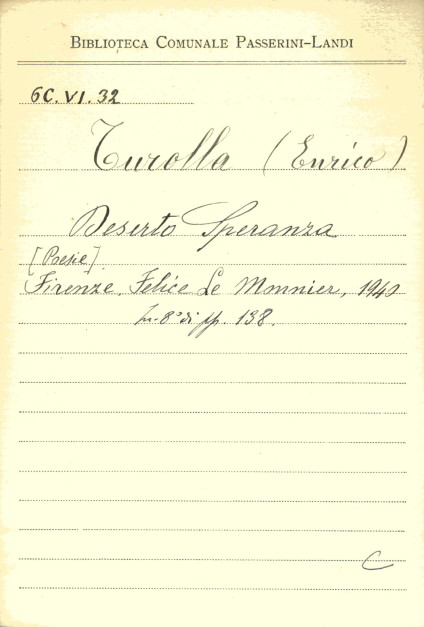 BIBLIOTECA COMUNALE PASSERINI-LANDI
6C.VI.32
Turolla (Enrico)
Deserto Speranza
[Poesie]
Firenze, Felice Le Monnier, 1940
In-8° di pp. 138.
C